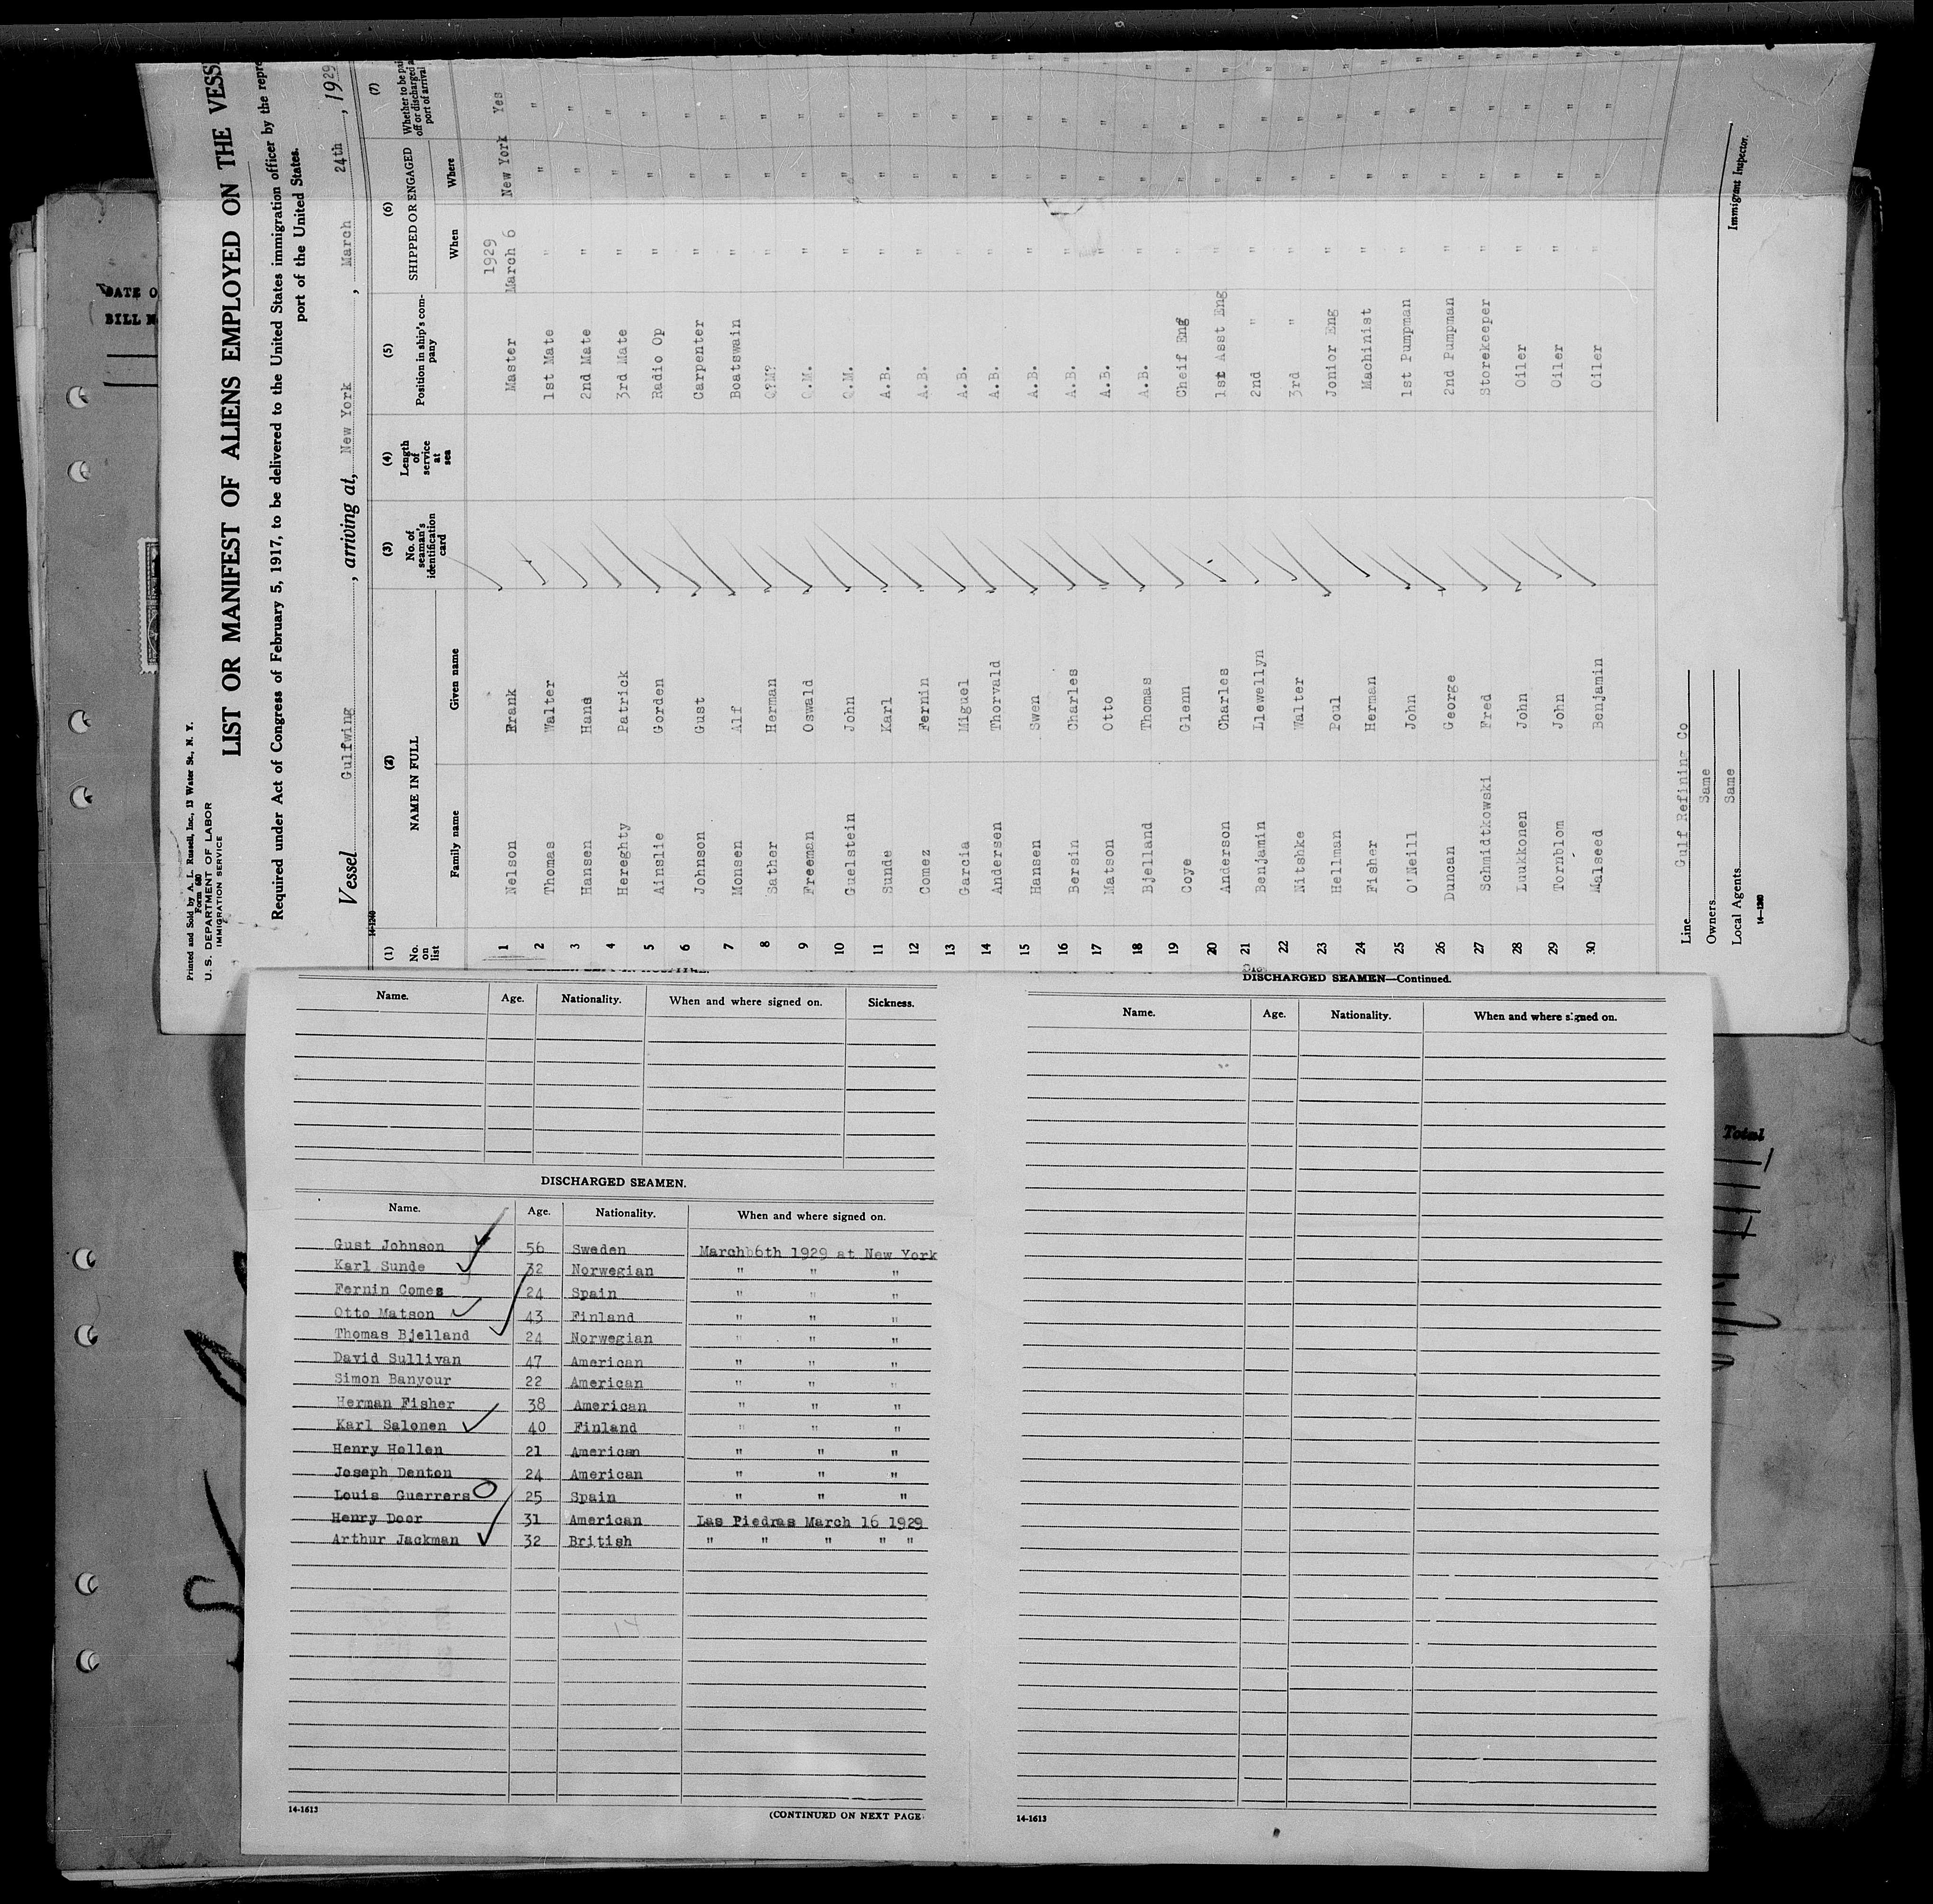 Printed and Sold by A. L. Russell, Inc., 13 Water St., N. Y.
Form 680
U. S. DEPARTMENT OF LABOR
IMMIGRATION SERVICE
LIST OR MANIFEST OF ALIENS EMPLOYED ON THE
Required under Act of Congress of February 5, 1917, to be delivered to the United States immigration officer by the
port of the United States.
Vessel Gulfwing, arriving at, New York, March 24th, 1929
14-1240
(1) (2) (3) (4) (5) (6) (7)
No. on list NAME IN FULL No. of seaman's identification card Length of service at sea Position in ship's company SHIPPED OR ENGAGED Whether to be off or discharged port of arrival
Family name Given name When Where
1929
1 Nelson Frank Master March 6 New York Yes
2 Thomas Walter 1st Mate " " "
3 Hansen Hans 2nd Mate " " "
4 Hereghty Patrick 3rd Mate " " "
5 Ainslie Gorden Radio Op " " "
6 Johnson Gust Carpenter " " "
7 Monsen Alf Boatswain " " "
8 Sather Herman Q?M? " " "
9 Freeman Oswald Q.M. " " "
10 Guelstein John Q.M. " " "
11 Sunde Karl A.B. " " "
12 Comez Fernin A.B. " " "
13 Garcia Miguel A.B. " " "
14 Andersen Thorvald A.B. " " "
15 Hansen Swen A.B. " " "
16 Bersin Charles A.B. " " "
17 Matson Otto A.B. " " "
18 Bjelland Thomas A.B. " " "
19 Coye Glenn Cheif Eng " " "
20 Anderson Charles 1st Asst Eng " " "
21 Benjamin Llewellyn 2nd " " " "
22 Nitshke Walter 3rd " " " "
23 Hellman Poul Jonior Eng " " "
24 Fisher Herman Machinist " " "
25 O'Neill John 1st Pumpman " " "
26 Duncan George 2nd Pumpman " " "
27 Schmidtkowski Fred Storekeeper " " "
28 Luukkonen John Oiler " " "
29 Tornblom John Oiler " " "
30 Malseed Benjamin Oiler " " "
Line Gulf Refining Co
Owners Same
Local Agents Same
14-1240
Immigrant Inspector.
BILL
Total
Name. Age. Nationality. When and where signed on. Sickness.
DISCHARGED SEAMEN.
Name. Age. Nationality. When and where signed on.
Gust Johnson 56 Sweden March 6th 1929 at New York
Karl Sunde 32 Norwegian " " "
Fernin Comes 24 Spain " " "
Otto Matson 43 Finland " " "
Thomas Bjelland 24 Norwegian " " "
David Sullivan 47 American " " "
Simon Banyour 22 American " " "
Herman Fisher 38 American " " "
Karl Salonen 40 Finland " " "
Henry Hollen 21 American " " "
Joseph Denton 24 American " " "
Louis Guerrers 25 Spain " " "
Henry Door 31 American Las Piedras March 16 1929
Arthur Jackman 32 British " " " " "
14
14-1613
(CONTINUED ON NEXT PAGE
DISCHARGED SEAMEN—Continued.
Name. Age. Nationality. When and where signed on.
14-1613